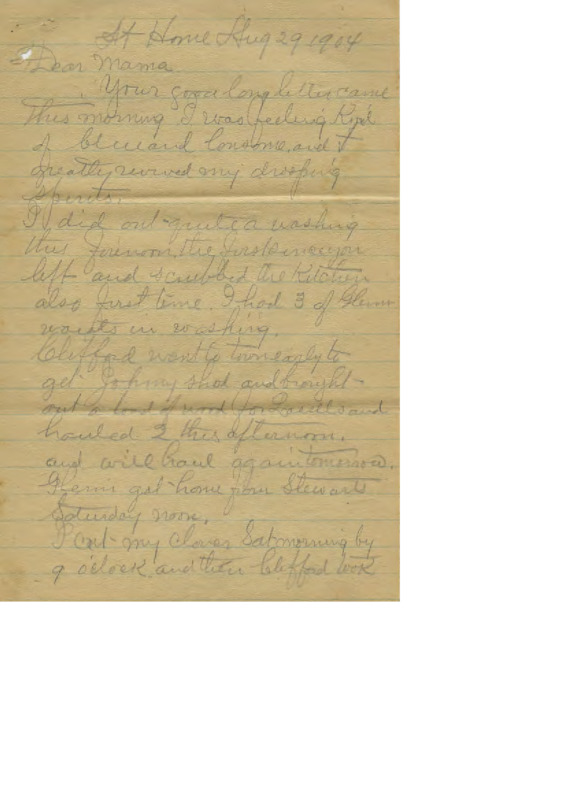 At Home Aug 29 1904
Dear Mama
Your good long letter came
this morning I was feeling Kind
of blue and lonsome, and it
greatly revived my drooping
spirits.
I did out quite a washing
this forenoon, the first since you
left and scrubbed the Kitchen
also first time. I had 3 of Glenns
waists in washing.
Clifford went to town early to
get Johnny shod and brought
out a load of wood for and
hauled 2 this afternoon.
and will haul again tomorrow.
Glenn got home from Stewarts
Saturday noon.
I cut my clover Sat morning by
9 o'clock and then Clifford took